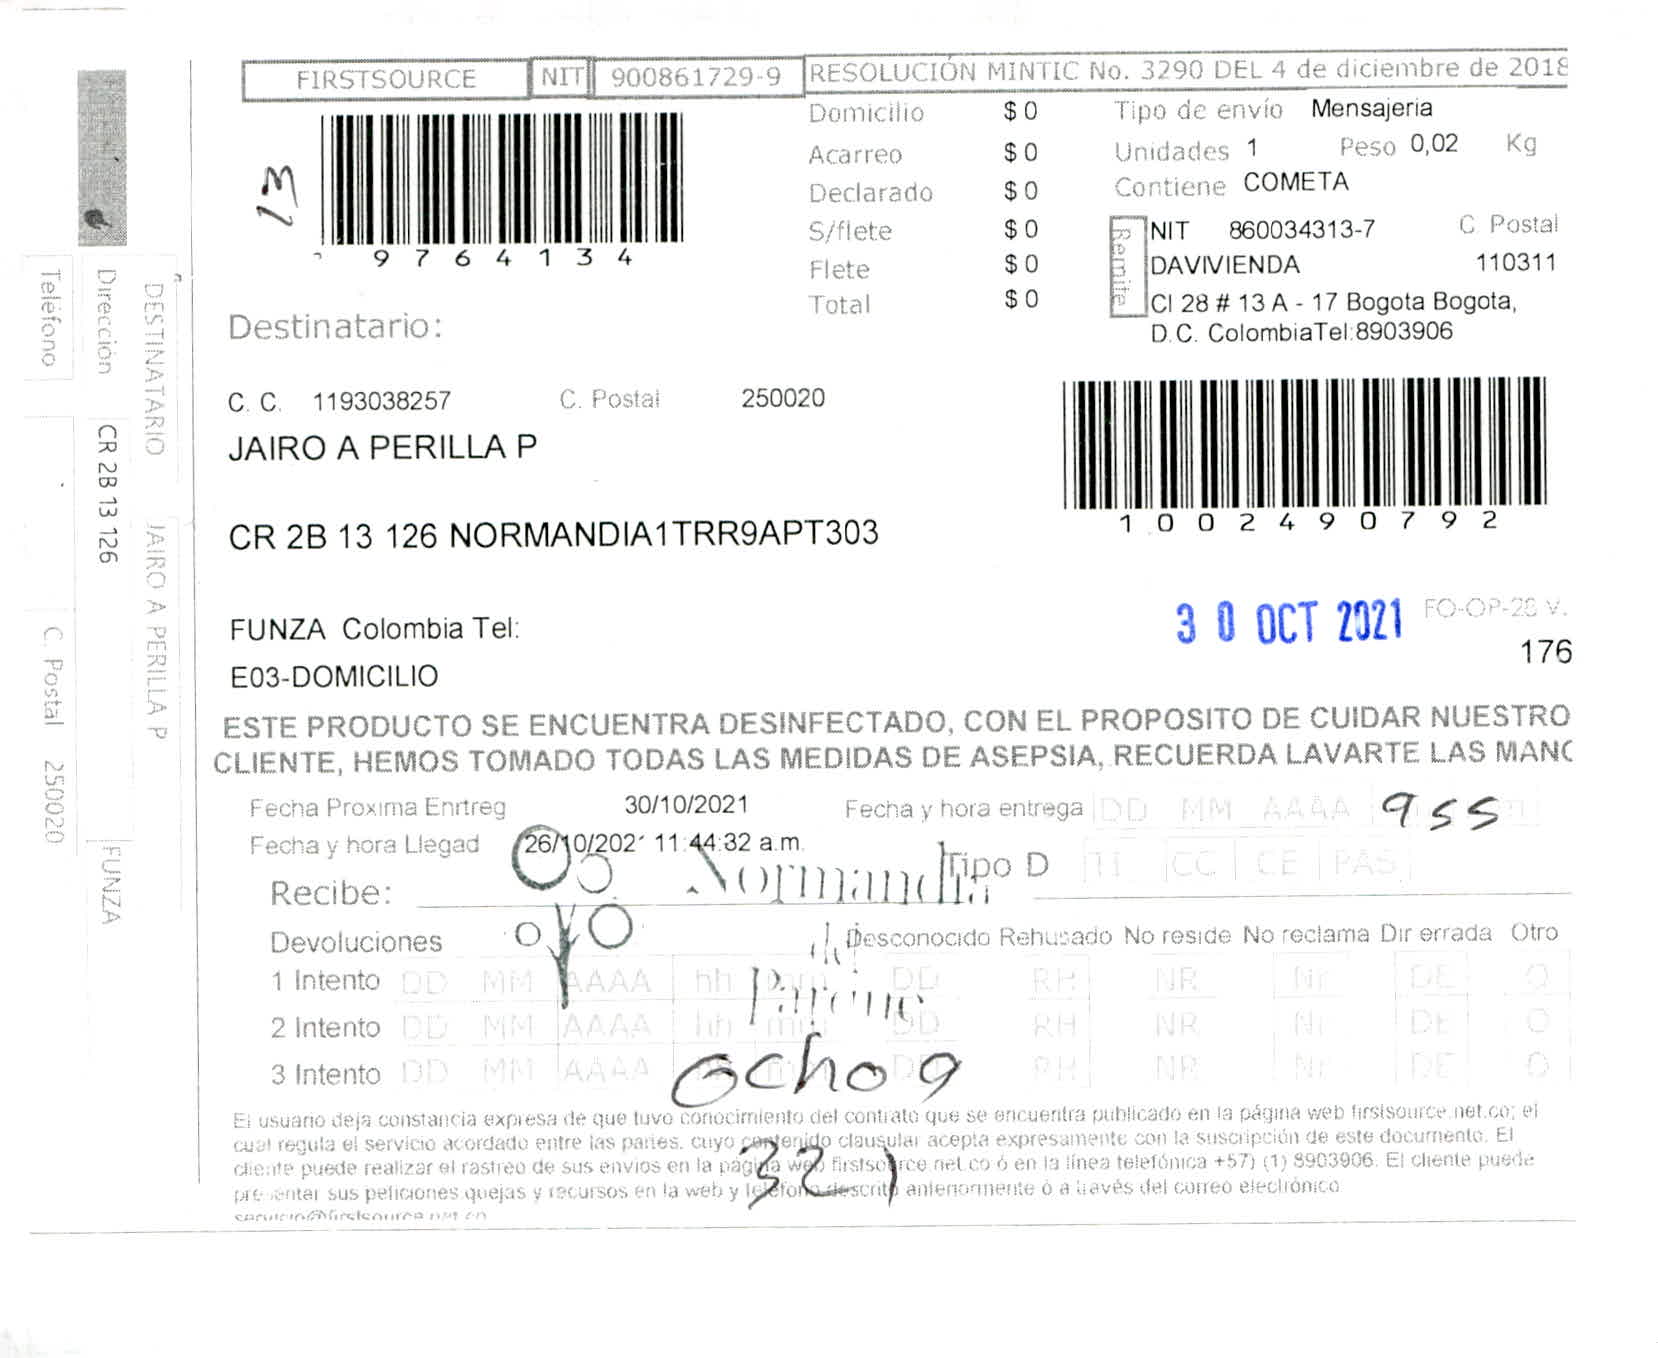 FIRSTSOURCE NIT 900861729-9 RESOLUCIÓN MINTIC No. 3290 DEL 4 de diciembre de 2018
13
9764134
Domicilio $ 0
Acarreo $ 0
Declarado $ 0
S/flete $ 0
Flete $ 0
Total $ 0
Tipo de envío Mensajeria
Unidades 1 Peso 0,02 Kg
Contiene COMETA
Remite
NIT 860034313-7 C Postal
DAVIVIENDA 110311
Cl 28 # 13 A - 17 Bogota Bogota,
D.C. ColombiaTel:8903906
Destinatario:
C. C. 1193038257 C. Postal 250020
JAIRO A PERILLA P
1002490792
CR 2B 13 126 NORMANDIA1TRR9APT303
FUNZA Colombia Tel:
E03-DOMICILIO
30 OCT 2021
FO-OP-28 V.
176
ESTE PRODUCTO SE ENCUENTRA DESINFECTADO, CON EL PROPOSITO DE CUIDAR NUESTRO
CLIENTE, HEMOS TOMADO TODAS LAS MEDIDAS DE ASEPSIA, RECUERDA LAVARTE LAS MANO
Fecha Proxima Enrtreg 30/10/2021 Fecha y hora entrega DD MM AAAA 955
Fecha y hora Llegad 26/10/202 11:44:32 a.m. Tipo D TI CC CE PAS
Recibe: Normandia
Devoluciones Desconocido Rehusado No reside No reclama Dir errada Otro
1 Intento DD MM AAAA hh mm DD RH NR Nr DE O
2 Intento DD MM AAAA hh mm DD RH NR Nr DE O
3 Intento DD MM AAAA DD RH NR Nr DE O
Ocho a
321
El usuario deja constancia expresa de que tuvo conocimiento del contrato que se encuentra publicado en la página web firstsource.net.co; el
cual regula el servicio acordado entre las partes, cuyo contenido clausular acepta expresamente con la suscripción de este documento. El
cliente puede realizar el rastreo de sus envios en la página web firstsource.net.co ó en la línea telefónica +57) (1) 8903906. El cliente puede
presentar sus peticiones quejas y recursos en la web y teléfono descrito anteriormente ó a través del correo electrónico
servicio@firstsource.net.co
DESTINATARIO JAIRO A PERILLA P
Dirección CR 2B 13 126 FUNZA
Teléfono C. Postal 250020